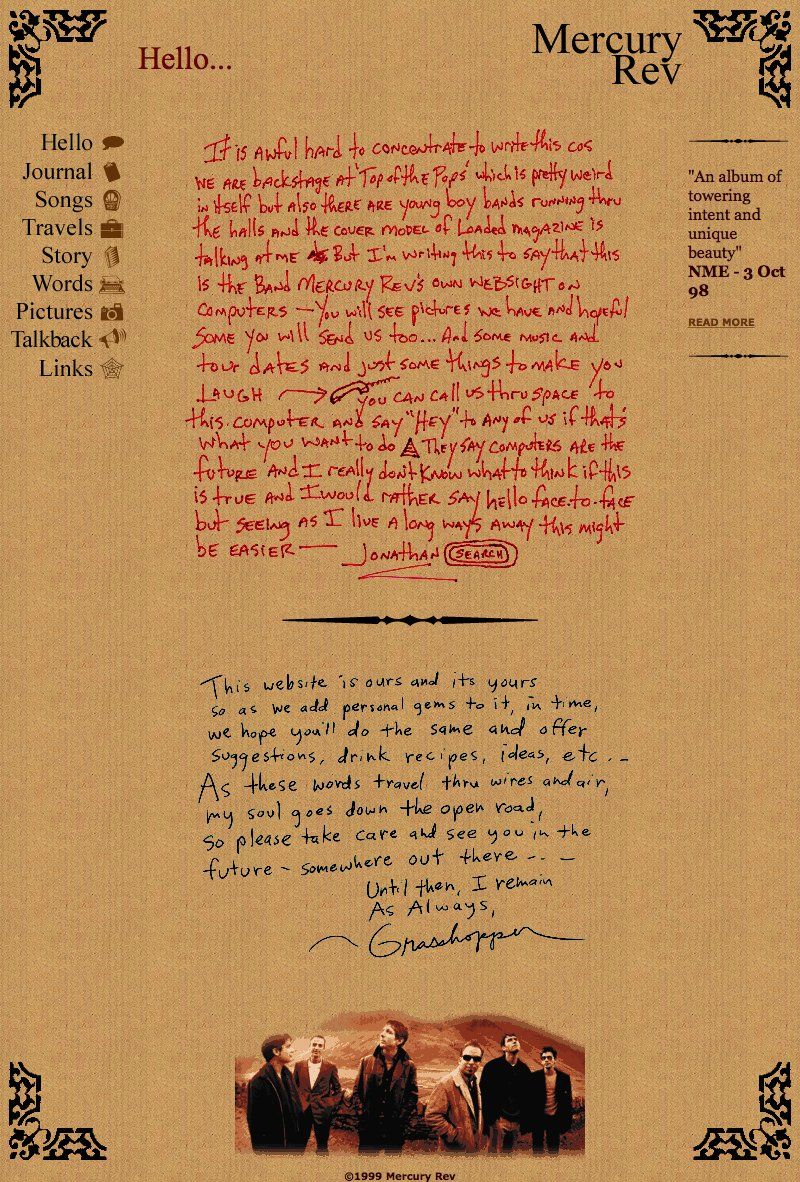 Hello...
Mercury
Rev
Hello
Journal
Songs
Travels
Story
Words
Pictures
Talkback
Links
It is awful hard to concentrate to write this cos
we are backstage at 'Top of the Pops' which is pretty weird
in itself but also there are young boy bands running thru
the halls and the cover model of Loaded magazine is
talking at me But I'm writing this to say that this
is the Band Mercury Rev's own websight on
computers — You will see pictures we have and hopeful
some you will send us too... And some music and
tour dates and just some things to make you
Laugh you can call us thru space to
this computer and say "Hey" to any of us if that's
what you want to do They say computers are the
future and I really don't know what to think if this
is true and I would rather say hello face-to-face
but seeing as I live a long ways away this might
be easier — Jonathan SEARCH
This website is ours and its yours
so as we add personal gems to it, in time,
we hope you'll do the same and offer
suggestions, drink recipes, ideas, etc...
As these words travel thru wires and air,
my soul goes down the open road,
So please take care and see you in the
future - somewhere out there ...
Until then, I remain
As Always,
Grasshopper
"An album of
towering
intent and
unique
beauty"
NME - 3 Oct
98
READ MORE
©1999 Mercury Rev